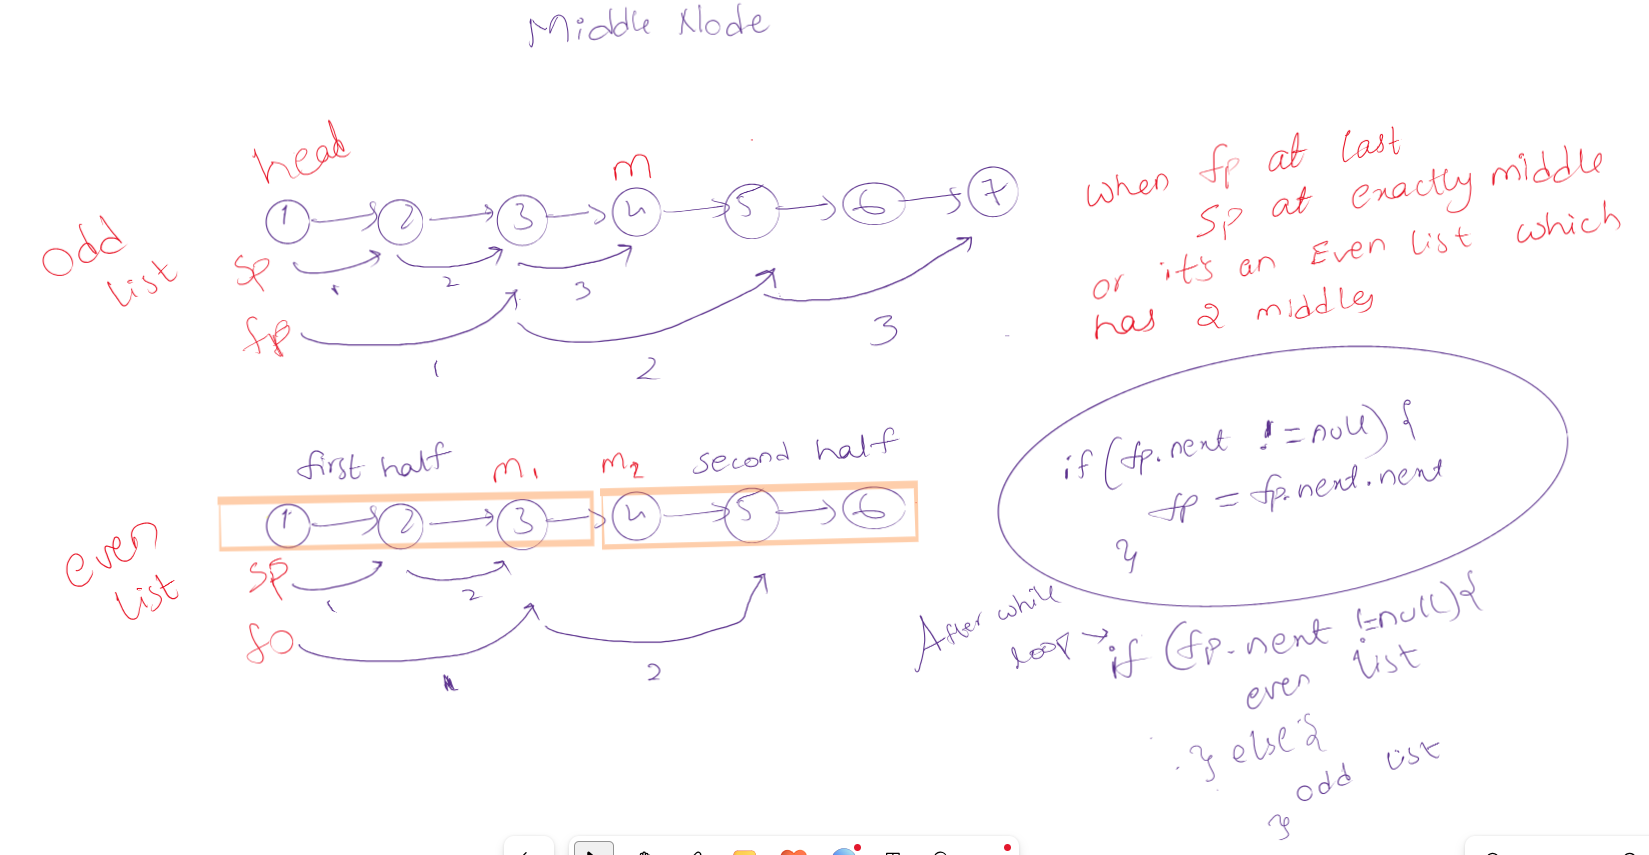 Middle Node
head
m
1 2 3 4 5 6 7
odd
list
sp
1 2 3
fp
1 2 3
when fp at last
sp at exactly middle
or it's an Even list which
has 2 middles
first half m1 m2 second half
1 2 3 4 5 6
even
list
sp
1 2
fo
1 2
if (fp.next != null) {
fp = fp.next.next
}
After while
loop → if (fp.next != null) {
even list
} else {
odd list
}